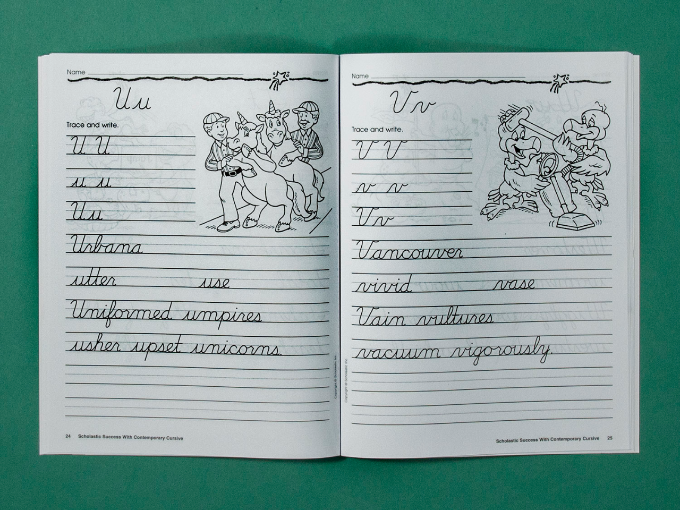 Name
Uu
Trace and write.
U U
u u
Uu
Urbana
utter use
Uniformed umpires
usher upset unicorns
24 Scholastic Success With Contemporary Cursive
Name
Vv
Trace and write.
V V
v v
Vv
Vancouver
vivid vase
Vain vultures
vacuum vigorously.
Scholastic Success With Contemporary Cursive 25